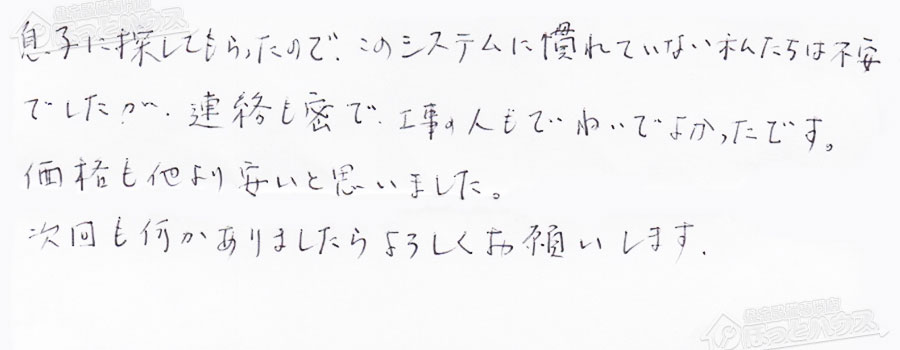 息子に探してもらったので、このシステムに慣れていない私たちは不安
でしたが、連絡も密で、工事の人もていねいでよかったです。
価格も他より安いと思いました。
次回も何かありましたらよろしくお願いします.
ほっとハウス
ほっとハウス